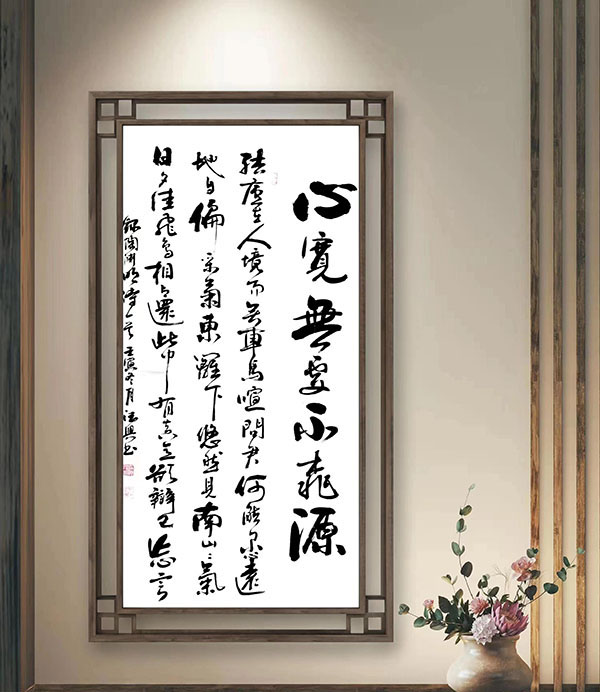 心寬無處不桃源
結廬在人境而無車馬喧問君何能尔心遠
地自偏采菊東籬下悠然見南山〻氣
日夕佳飛鳥相與還此中有真意欲辯已忘言
錄陶淵明詩一首 壬寅冬月 興書